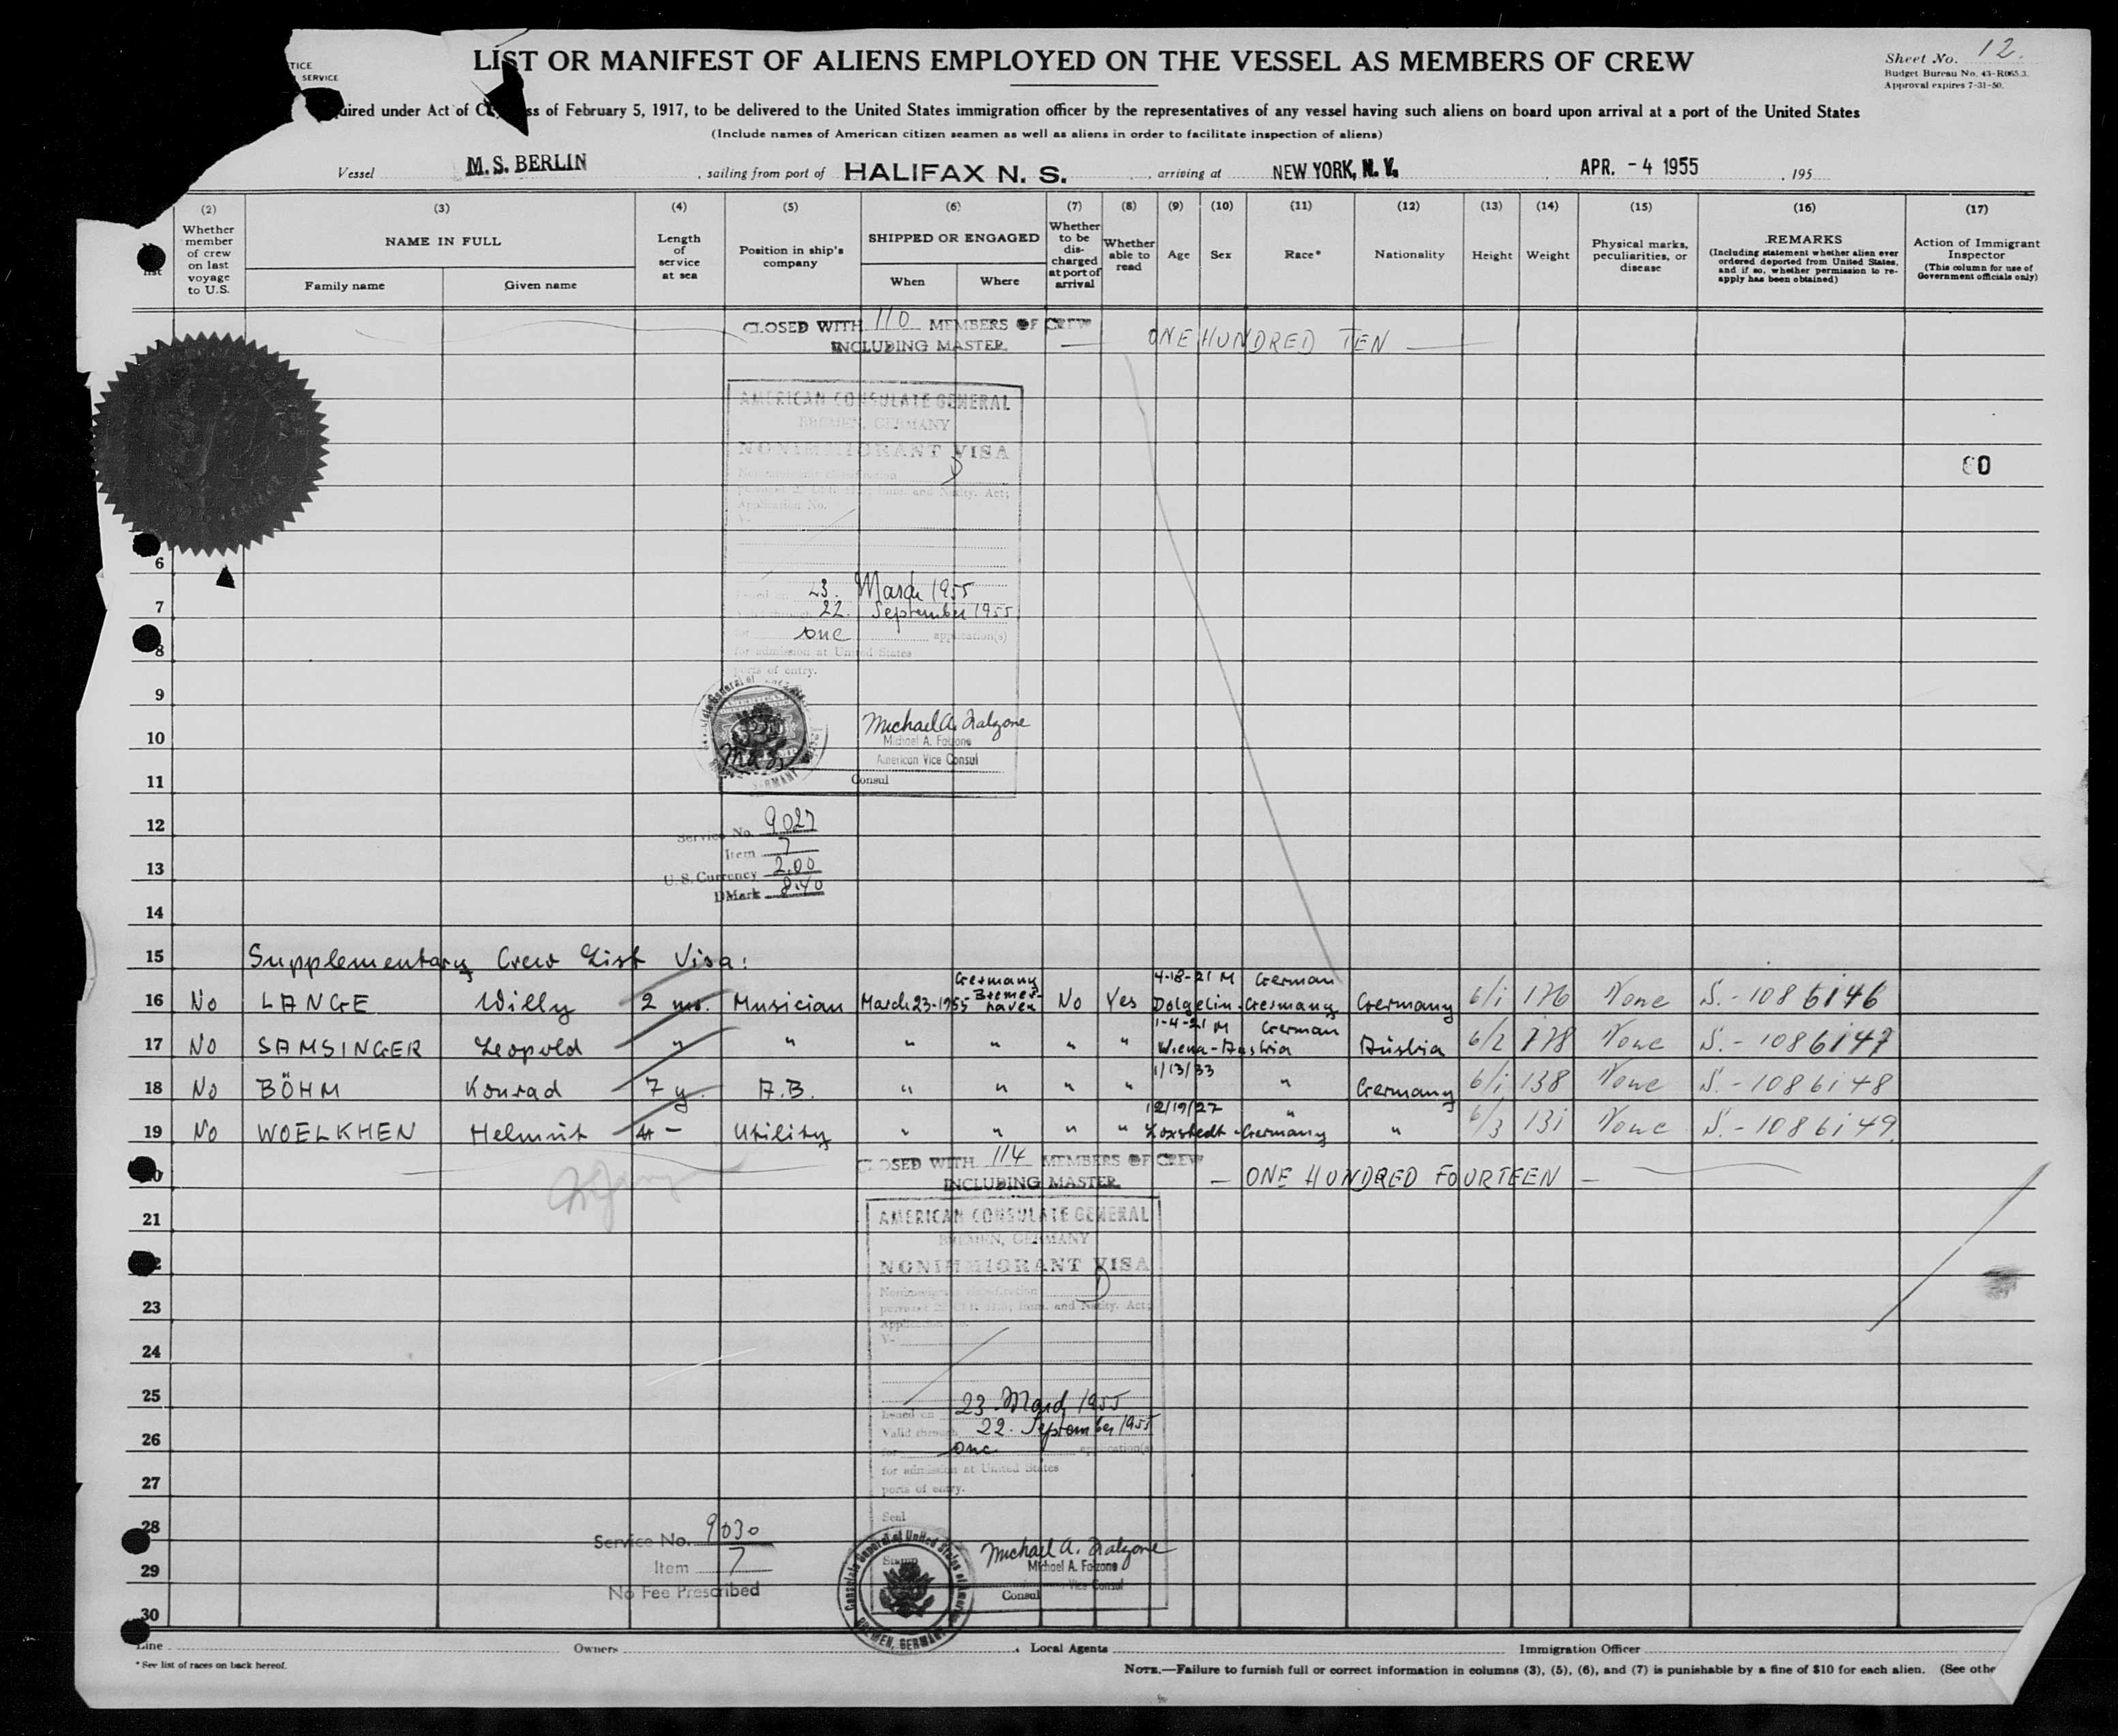 TICE
SERVICE
LIST OR MANIFEST OF ALIENS EMPLOYED ON THE VESSEL AS MEMBERS OF CREW
Sheet No. 12.
Budget Bureau No. 43-R065.3.
Approval expires 7-31-50.
quired under Act of C ss of February 5, 1917, to be delivered to the United States immigration officer by the representatives of any vessel having such aliens on board upon arrival at a port of the United States
(Include names of American citizen seamen as well as aliens in order to facilitate inspection of aliens)
Vessel M.S. BERLIN , sailing from port of HALIFAX N. S. , arriving at NEW YORK, N. Y. , APR. - 4 1955 , 195
(2) (3) (4) (5) (6) (7) (8) (9) (10) (11) (12) (13) (14) (15) (16) (17)
list
Whether member of crew on last voyage to U.S.
NAME IN FULL
Family name Given name
Length of service at sea
Position in ship's company
SHIPPED OR ENGAGED
When Where
Whether to be discharged at port of arrival
Whether able to read
Age Sex Race* Nationality Height Weight
Physical marks, peculiarities, or disease
REMARKS
(Including statement whether alien ever ordered deported from United States, and if so, whether permission to reapply has been obtained)
Action of Immigrant Inspector
(This column for use of Government officials only)
CLOSED WITH 110 MEMBERS OF CREW
INCLUDING MASTER. — ONE HUNDRED TEN —
AMERICAN CONSULATE GENERAL
BREMEN, GERMANY
NONIMMIGRANT VISA
Nonimmigrant classification D
Application No.
V-
6
Issued on 23. March 1955
7
Valid through 22. September 1955
for one application(s)
8
for admission at United States
ports of entry.
9
10
Michael A. Falzone
Michael A. Falzone
American Vice Consul
Consul
11
12
Service No. 9027
Item 7
13
U.S. Currency 2.00
DMark 8.40
14
15 Supplementary Crew List Visa:
16 No LANGE Willy 2 mo. Musician March 23-1955 Germany Bremerhaven No Yes 4-18-21 M German Dolgelin-Germany Germany 6/1 176 None S.-1086146
17 No SAMSINGER Leopold " " " " " " 1-4-21 M German Wiena-Austria Austria 6/2 178 None S.-1086147
18 No BÖHM Konrad 7 y. A.B. " " " " 1/13/33 " Germany 6/1 138 None S.-1086148
19 No WOELKHEN Helmut 4 - Utility " " " " 12/19/27 " Loxstedt-Germany " 6/3 131 None S.-1086149.
20
CLOSED WITH 114 MEMBERS OF CREW
INCLUDING MASTER. — ONE HUNDRED FOURTEEN —
21
AMERICAN CONSULATE GENERAL
BREMEN, GERMANY
NONIMMIGRANT VISA
Nonimmigrant classification D
23
Application No.
V-
24
25
Issued on 23. March 1955
Valid through 22. September 1955
26
for one application(s)
for admission at United States
27
ports of entry.
28
Seal
Service No. 9030
Item 7
No Fee Prescribed
Consulate General of United States of America
BREMEN, GERMANY
Stamp
Michael A. Falzone
Michael A. Falzone
Vice Consul
Consul
29
30
Line Owners , Local Agents Immigration Officer
* See list of races on back hereof.
NOTE.—Failure to furnish full or correct information in columns (3), (5), (6), and (7) is punishable by a fine of $10 for each alien. (See othe
60